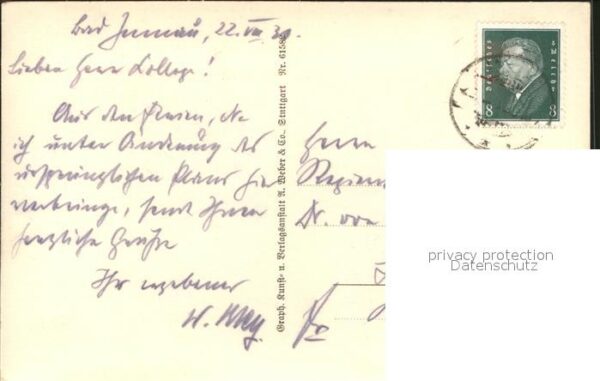 Bad Imnau, 22. VII 30.
Lieber Herr Kollege!
Aus den Ferien, die
ich unter Änderung des
ursprünglichen Planes hier
verbringe, sendet Ihnen
herzliche Grüße
Ihr ergebener
W.
Graph. Kunst- u. Verlagsanstalt A. Weber & Co., Stuttgart Nr. 6158
DEUTSCHES REICH
8 8
Herrn
Regier
Dr. von
privacy protection
Datenschutz